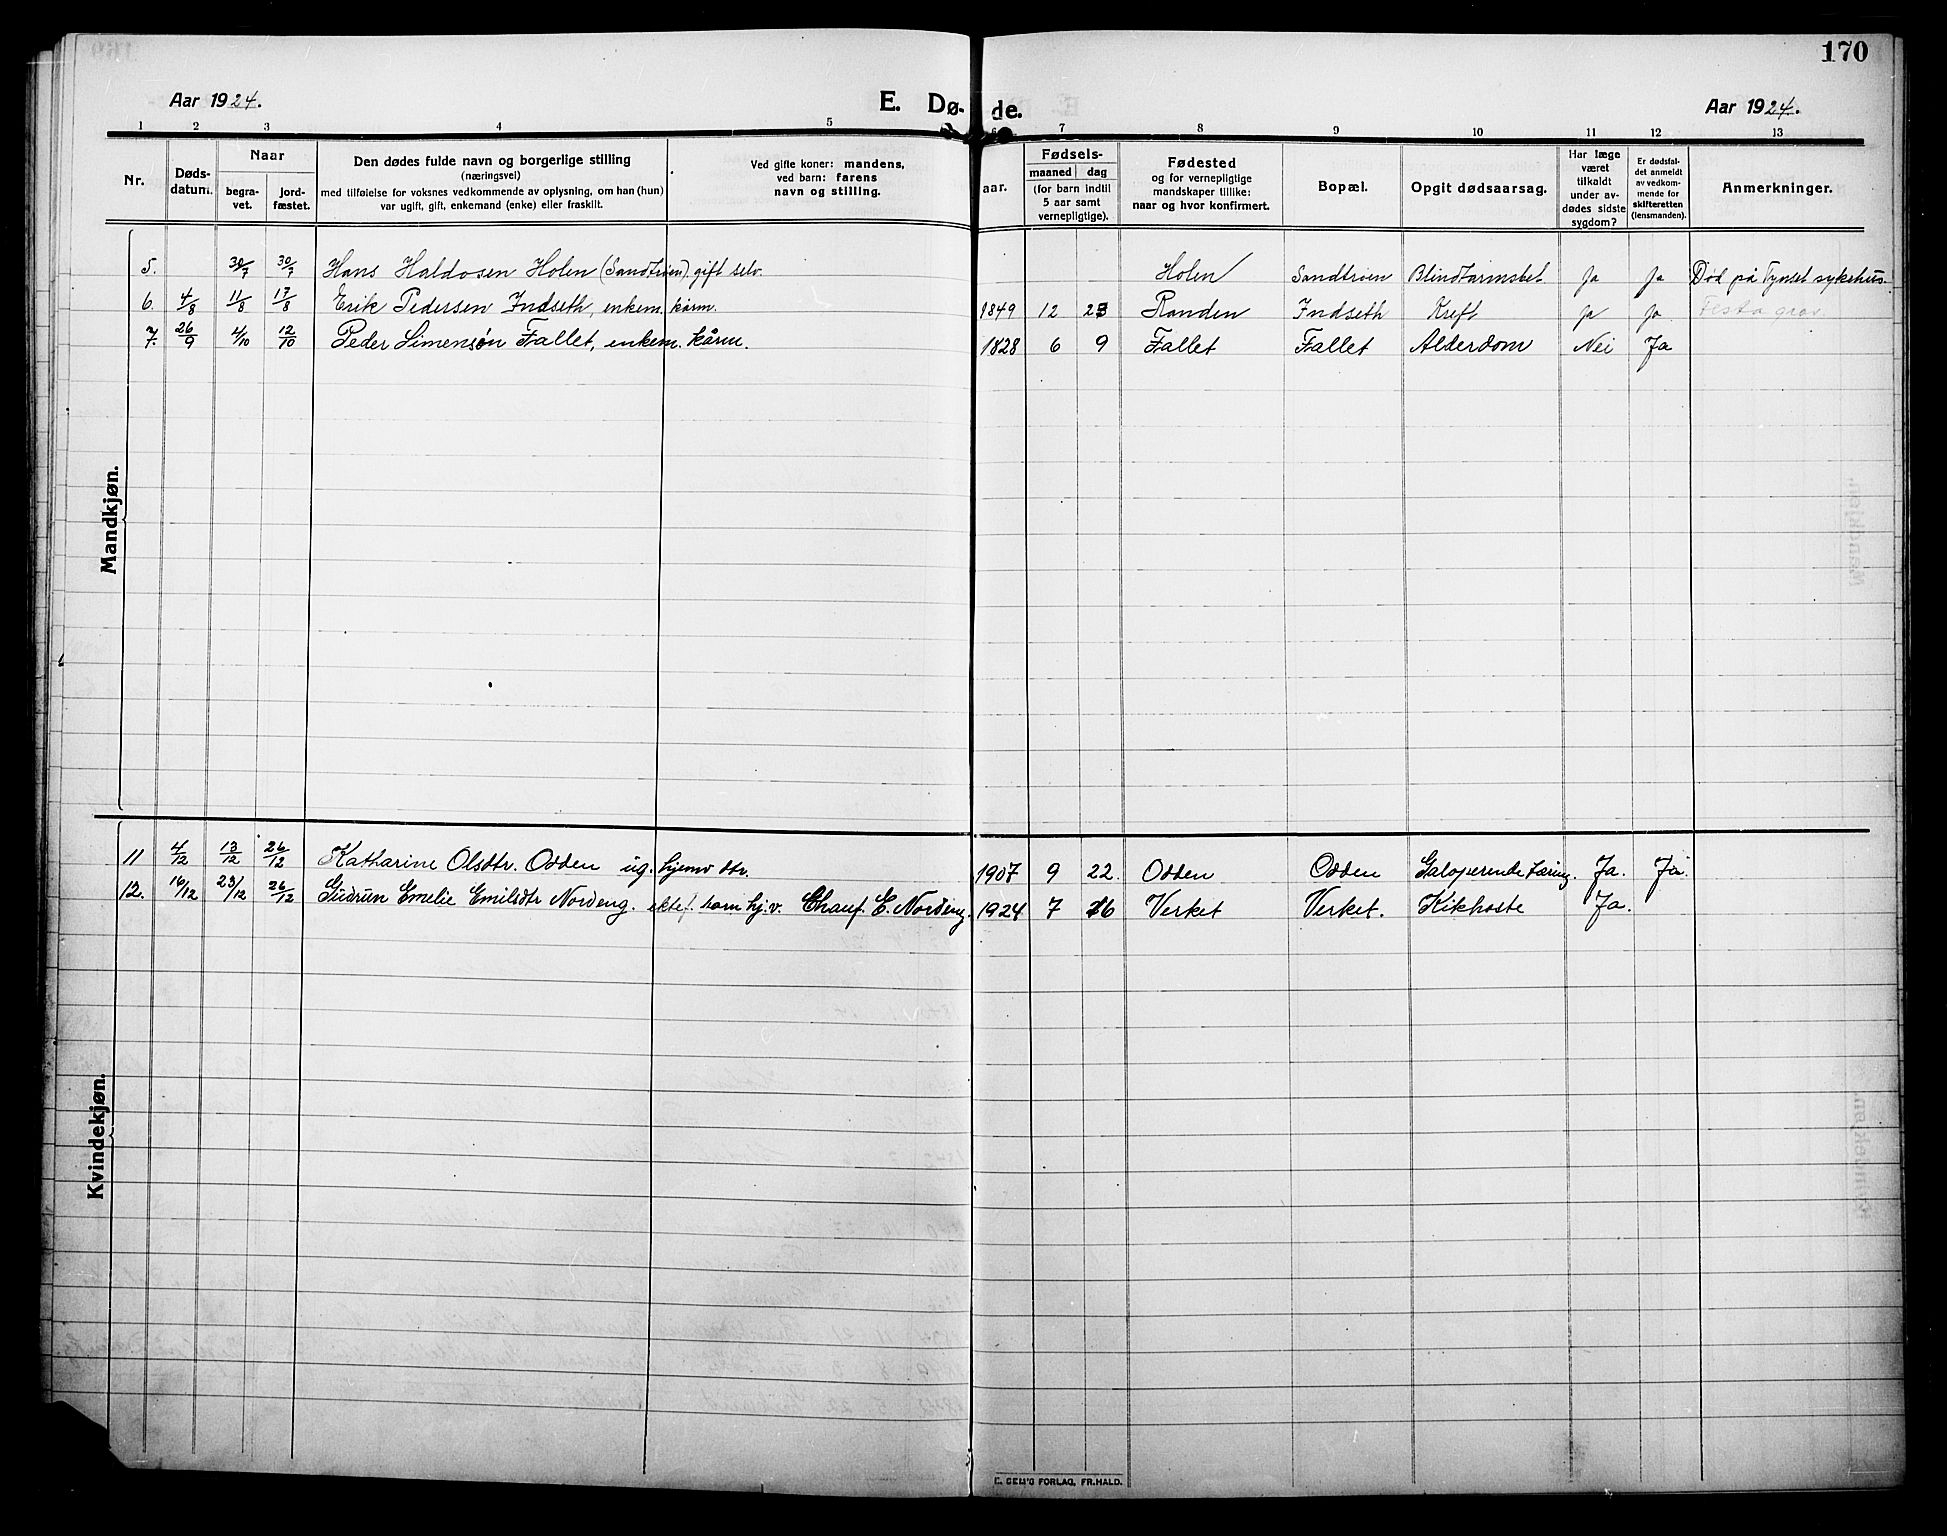 170
Aar 1924.
E. Dø- de.
Aar 1924.
1 2 3 4 5 7 8 9 10 11 12 13
Nr.
Døds-
datum.
Naar
begra-
vet.
jord-
fæstet.
Den dødes fulde navn og borgerlige stilling
(næringsvei)
med tilføielse for voksnes vedkommende av oplysning, om han (hun)
var ugift, gift, enkemand (enke) eller fraskilt.
Ved gifte koner: mandens,
ved barn: farens
navn og stilling.
aar.
Fødsels-
maaned dag
(for barn indtil
5 aar samt
vernepligtige).
Fødested
og for vernepligtige
mandskaper tillike:
naar og hvor konfirmert.
Bopæl.
Opgit dødsaarsag.
Har læge
været
tilkaldt
under av-
dødes sidste
sygdom?
Er dødsfal-
det anmeldt
av vedkom-
mende for
skifteretten
(lensmanden).
Anmerkninger.
Mandkjøn.
5. 30/7 30/7 Hans Haldosen Holen (Sandtrøen). gift selv. Holen Sandtrøen Blindtarmsbet. Ja Ja Død på Tynset sykehus.
6. 4/8 11/8 17/8 Erik Pedersen Indseth, enkem. kårm. 1849 12 23 Randen Indseth Kreft Ja Ja Festa grav.
7. 26/9 4/10 12/10 Peder Simensøn Fallet, enkem. kårm. 1828 6 9 Fallet Fallet Alderdom Nei Ja
Kvindekjøn.
11 4/12 13/12 26/12 Katharine Olsdtr. Odden ug. hjemv dtr. 1907 9 22. Odden Odden Galoperende tæring. Ja. Ja.
12. 16/12 23/12 26/12 Gudrun Emelie Emilsdtr Nordeng. ektef. barn hj.v. Chauf. E. Nordeng. 1924 7 16 Verket Verket. Kikhoste Ja.
FORLAG, FR. HALD.